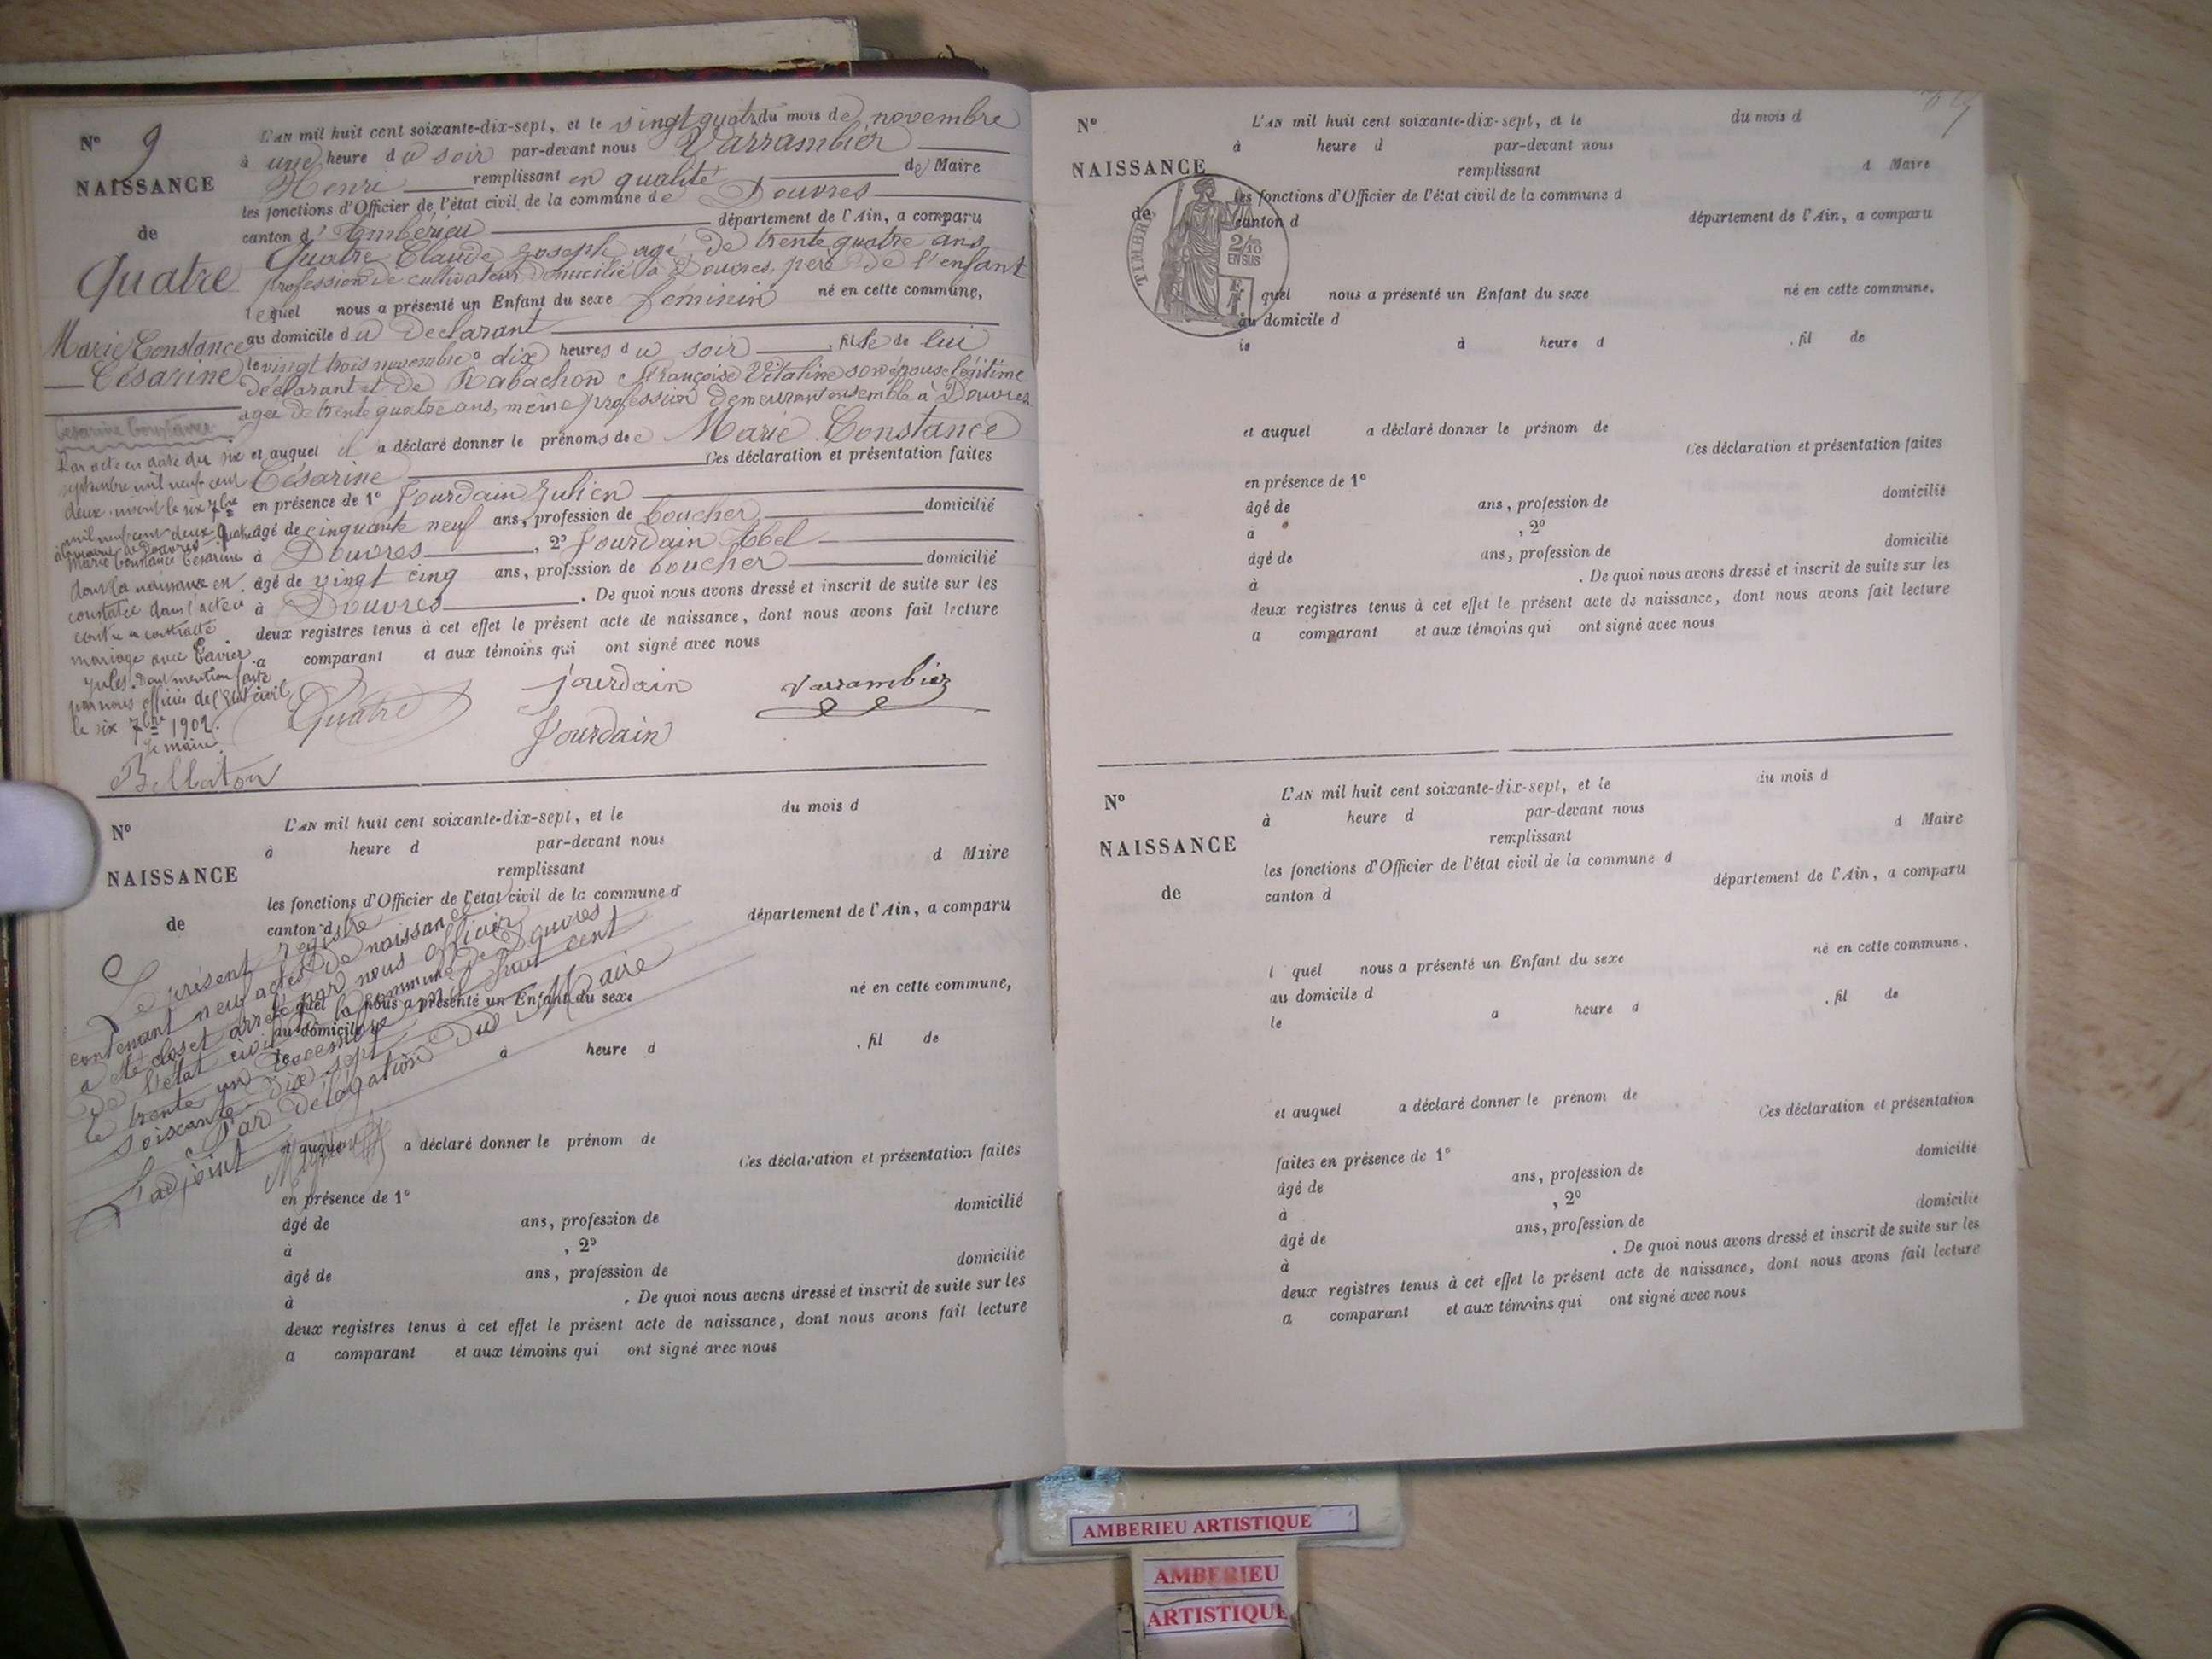 N° 9
NAISSANCE
de
Quatre
Marie Constance
Césarine
L'AN mil huit cent soixante-dix-sept, et le vingt quatre du mois de novembre
à une heure du soir par-devant nous Varrambier
Henri remplissant en qualité de Maire
les fonctions d'Officier de l'état civil de la commune de Douvres
canton d'Ambérieu département de l'Ain, a comparu
Quatre Claude Joseph agé de trente quatre ans
profession de cultivateur domicilié à Douvres, père de l'enfant
lequel nous a présenté un Enfant du sexe féminin né en cette commune,
au domicile du déclarant
le vingt trois novembre à dix heures du soir, fille de lui
déclarant et de Rabachon Françoise Vitaline son épouse légitime
agée de trente quatre ans, même profession demeurant ensemble à Douvres
et auquel il a déclaré donner le prénoms de Marie Constance
Césarine Ces déclaration et présentation faites
en présence de 1° Jourdain Julien
âgé de cinquante neuf ans, profession de boucher domicilié
à Douvres, 2° Jourdain Abel
âgé de vingt cinq ans, profession de boucher domicilié
à Douvres. De quoi nous avons dressé et inscrit de suite sur les
deux registres tenus à cet effet le présent acte de naissance, dont nous avons fait lecture
a comparant et aux témoins qui ont signé avec nous
Quatre Jourdain Varrambier
Jourdain
Césarine Constance
Par acte en date du six
septembre mil neuf cent
deux, inscrit le six 7bre
mil neuf cent deux, Quatre
à la mairie de Douvres
Marie Constance Césarine
dont la naissance est
constatée dans l'acte ci
contre a contracté
mariage avec
Jules. Dont mention faite
par nous officier de l'Etat civil
le six 7bre 1902.
Le maire
Bellaton
N°
NAISSANCE
de
L'AN mil huit cent soixante-dix-sept, et le du mois d
à heure d par-devant nous
remplissant d Maire
les fonctions d'Officier de l'état civil de la commune d
canton d département de l'Ain, a comparu
l quel nous a présenté un Enfant du sexe né en cette commune,
au domicile d
le à heure d , fil de
et auquel a déclaré donner le prénom de
Ces déclaration et présentation faites
en présence de 1°
âgé de ans, profession de domicilié
à , 2°
âgé de ans, profession de domicilié
à . De quoi nous avons dressé et inscrit de suite sur les
deux registres tenus à cet effet le présent acte de naissance, dont nous avons fait lecture
a comparant et aux témoins qui ont signé avec nous
Le présent registre
contenant neuf actes de naissance
a été clos et arrêté par nous officier
de l'état civil de la commune de Douvres
le trente un décembre mil huit cent
soixante-dix sept
Par délégation du Maire
L'adjoint
N°
NAISSANCE
de
TIMBRE
2/10
EN SUS
L'AN mil huit cent soixante-dix-sept, et le du mois d
à heure d par-devant nous
remplissant d Maire
les fonctions d'Officier de l'état civil de la commune d
canton d département de l'Ain, a comparu
quel nous a présenté un Enfant du sexe né en cette commune.
au domicile d
le à heure d , fil de
et auquel a déclaré donner le prénom de
Ces déclaration et présentation faites
en présence de 1°
âgé de ans, profession de domicilié
à , 2°
âgé de ans, profession de domicilié
à . De quoi nous avons dressé et inscrit de suite sur les
deux registres tenus à cet effet le présent acte de naissance, dont nous avons fait lecture
a comparant et aux témoins qui ont signé avec nous
N°
NAISSANCE
de
L'AN mil huit cent soixante-dix-sept, et le du mois d
à heure d par-devant nous
remplissant d Maire
les fonctions d'Officier de l'état civil de la commune d
canton d département de l'Ain, a comparu
l quel nous a présenté un Enfant du sexe né en cette commune.
au domicile d
le a heure d , fil de
et auquel a déclaré donner le prénom de
Ces déclaration et présentation
faites en présence de 1°
âgé de ans, profession de domicilié
à , 2°
âgé de ans, profession de domicilié
à . De quoi nous avons dressé et inscrit de suite sur les
deux registres tenus à cet effet le présent acte de naissance, dont nous avons fait lecture
a comparant et aux témoins qui ont signé avec nous
AMBERIEU ARTISTIQUE
AMBERIEU
ARTISTIQUE